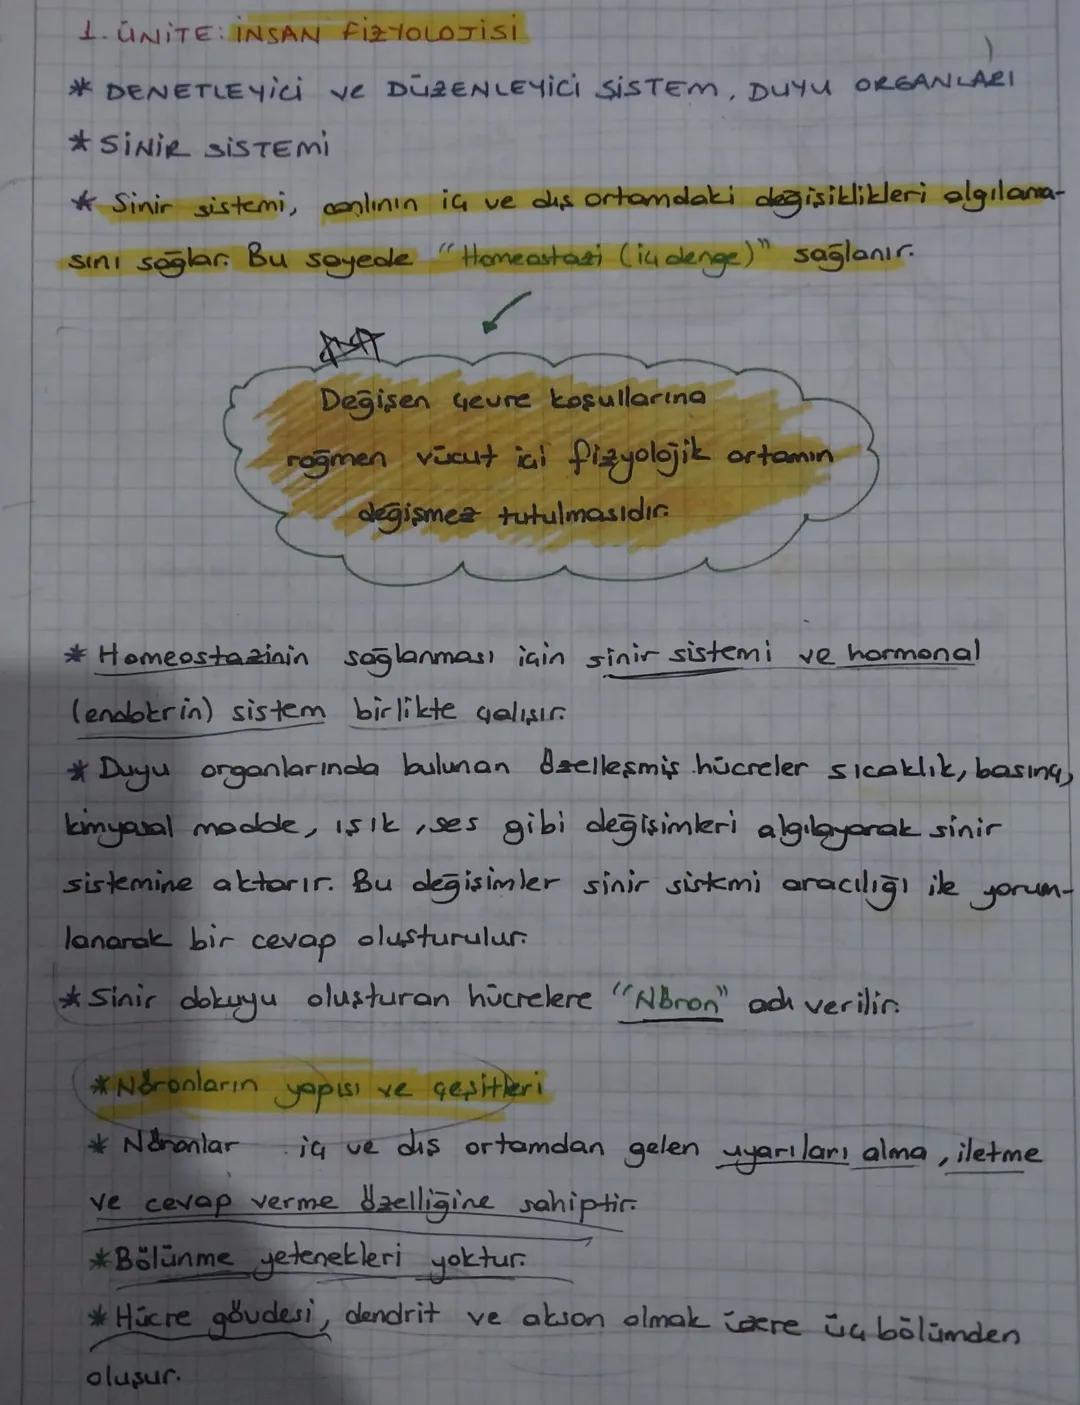 1. ÜNİTE: İNSAN FİZYOLOJİSİ
* DENETLEYİCİ ve DÜZENLEYİCİ SİSTEM, DUYU ORGANLARI
* SİNİR SİSTEMİ
* Sinir sistemi, canlının iç ve dış ortamdaki değişiklikleri algılama-
sını sağlar. Bu sayede "Homeostazi (iç denge)" sağlanır.
Değişen çevre koşullarına
rağmen vücut içi fizyolojik ortamın
değişmez tutulmasıdır.
* Homeostazinin sağlanması için sinir sistemi ve hormonal
(endokrin) sistem birlikte çalışır.
* Duyu organlarında bulunan özelleşmiş hücreler sıcaklık, basınç,
kimyasal madde, ışık, ses gibi değişimleri algılayarak sinir
sistemine aktarır. Bu değişimler sinir sistemi aracılığı ile yorum-
lanarak bir cevap oluşturulur.
* Sinir dokuyu oluşturan hücrelere "Nöron" adı verilir.
* Nöronların yapısı ve çeşitleri
* Nöronlar iç ve dış ortamdan gelen uyarıları alma, iletme
ve cevap verme özelliğine sahiptir.
* Bölünme yetenekleri yoktur.
* Hücre gövdesi, dendrit ve akson olmak üzere üç bölümden
oluşur.